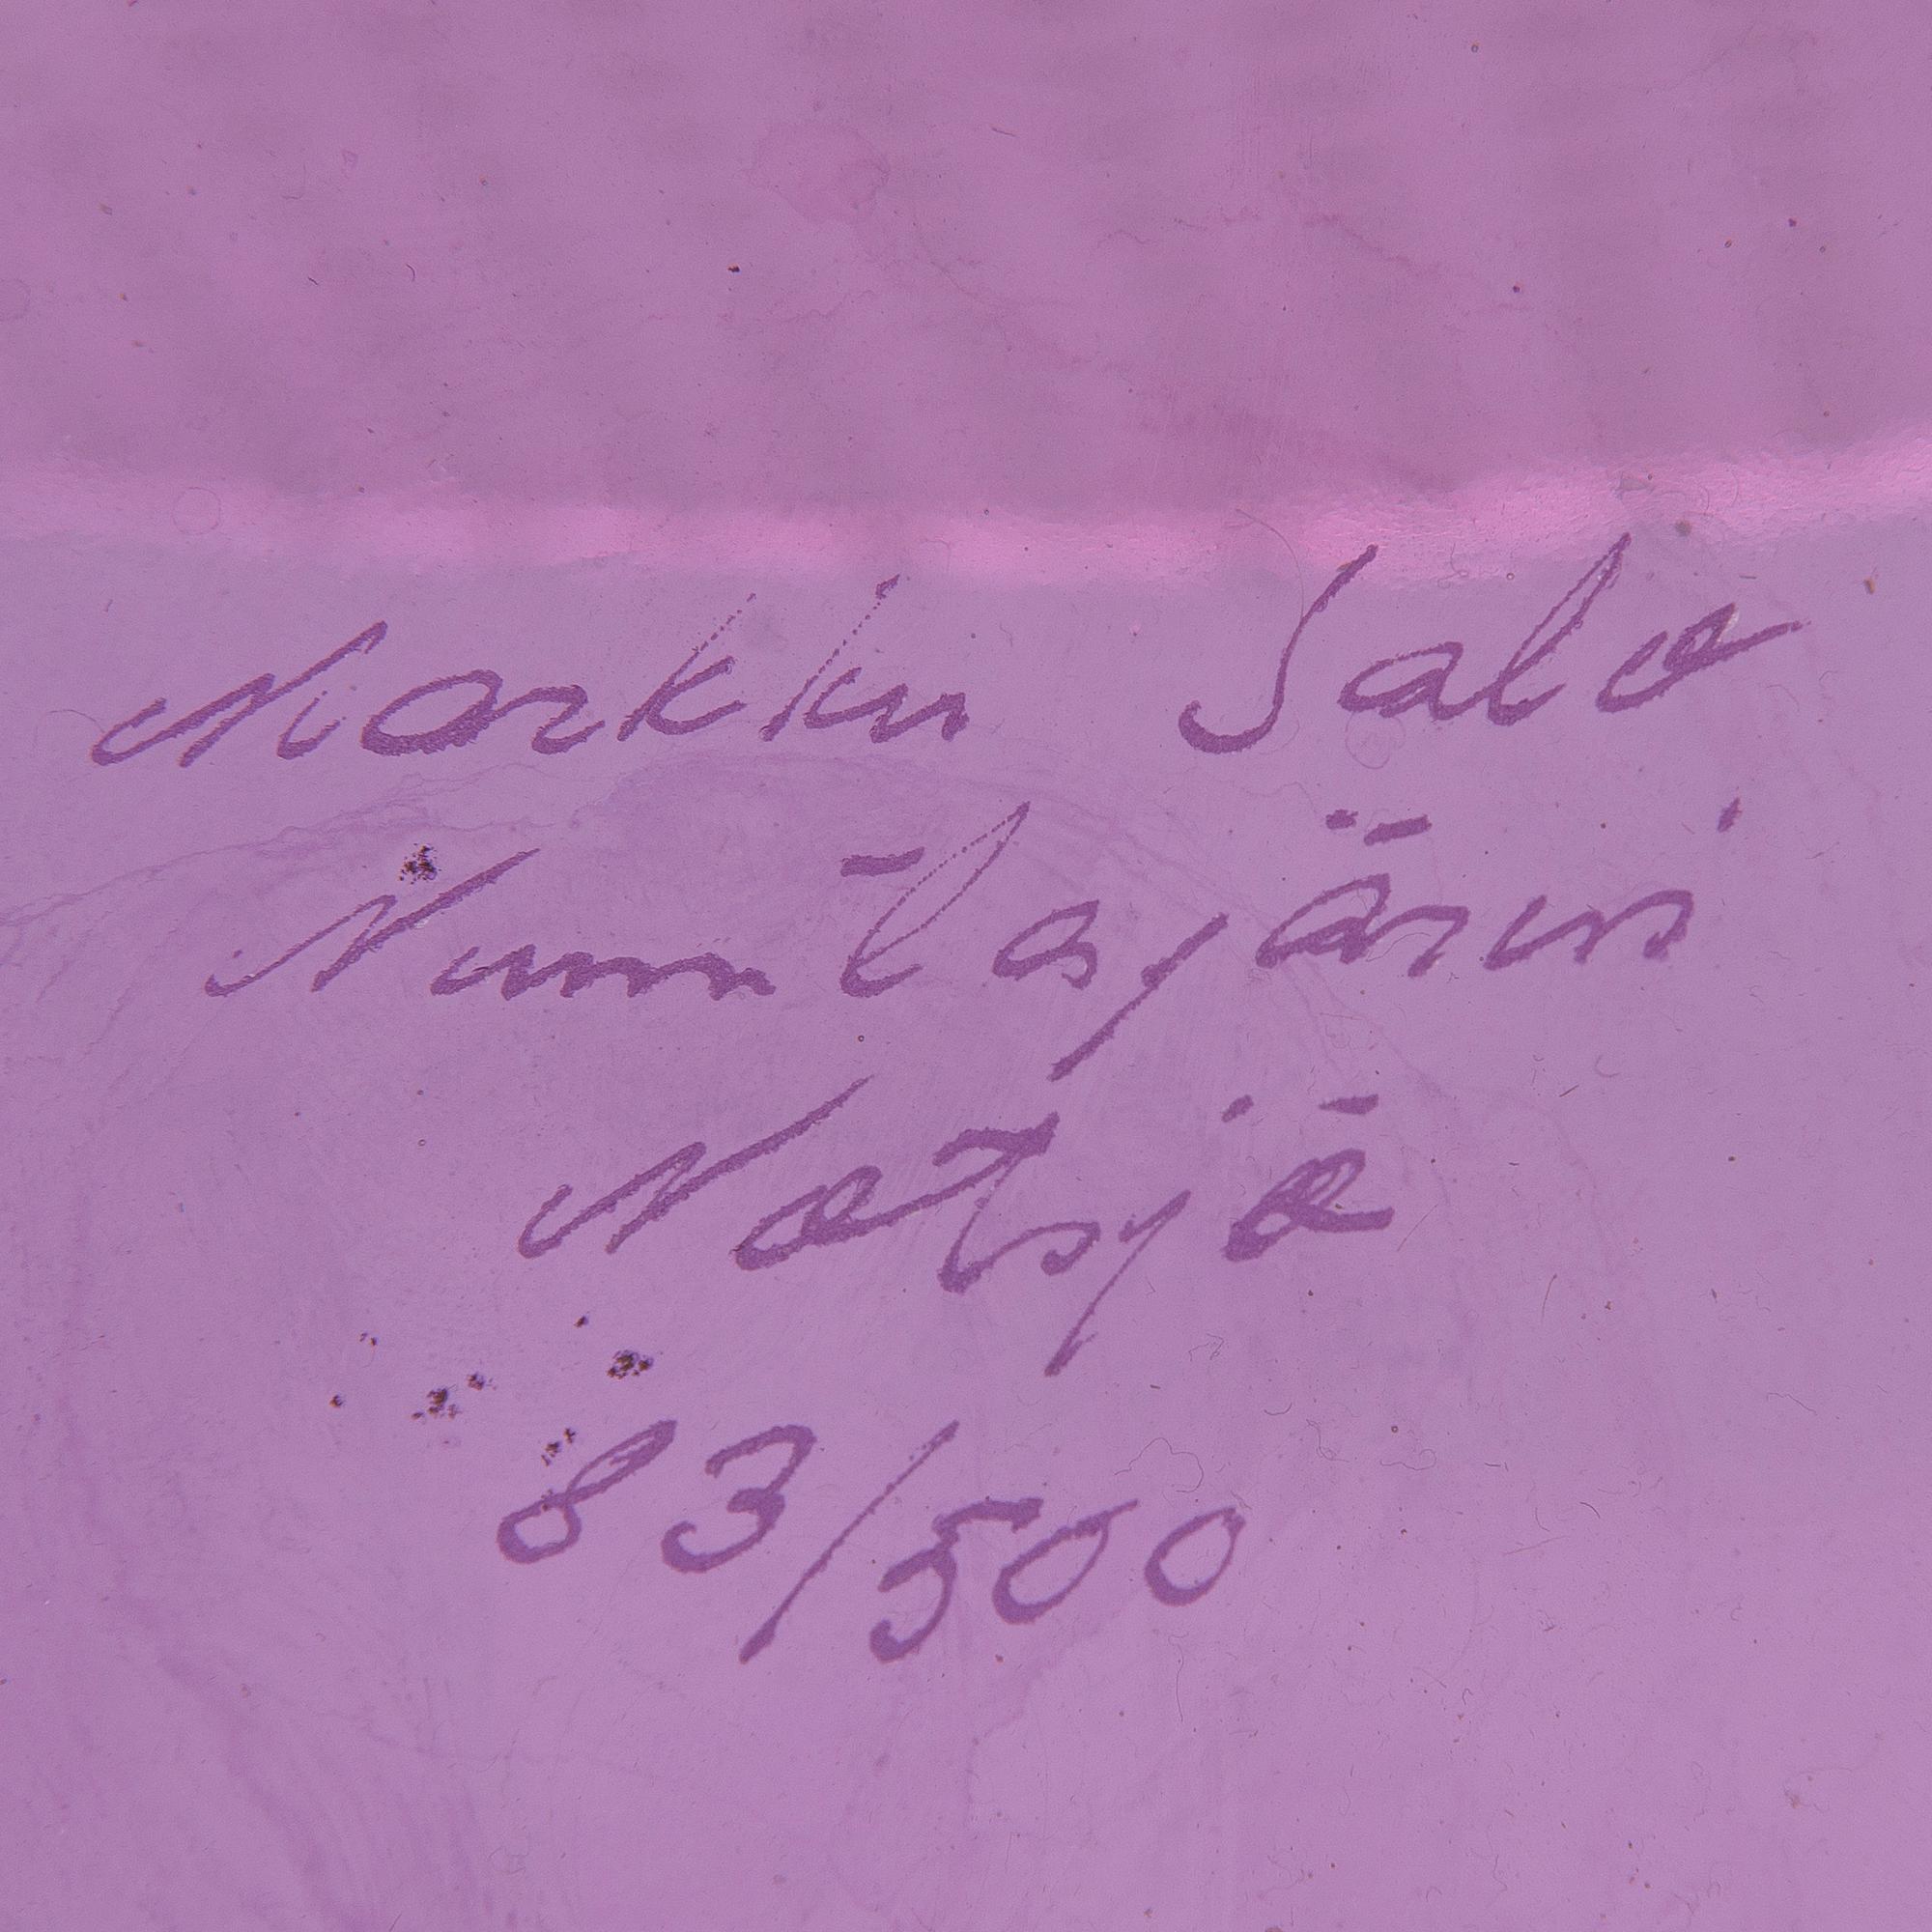 Markku Salo
Nuutajärvi
Notsjö
83/500